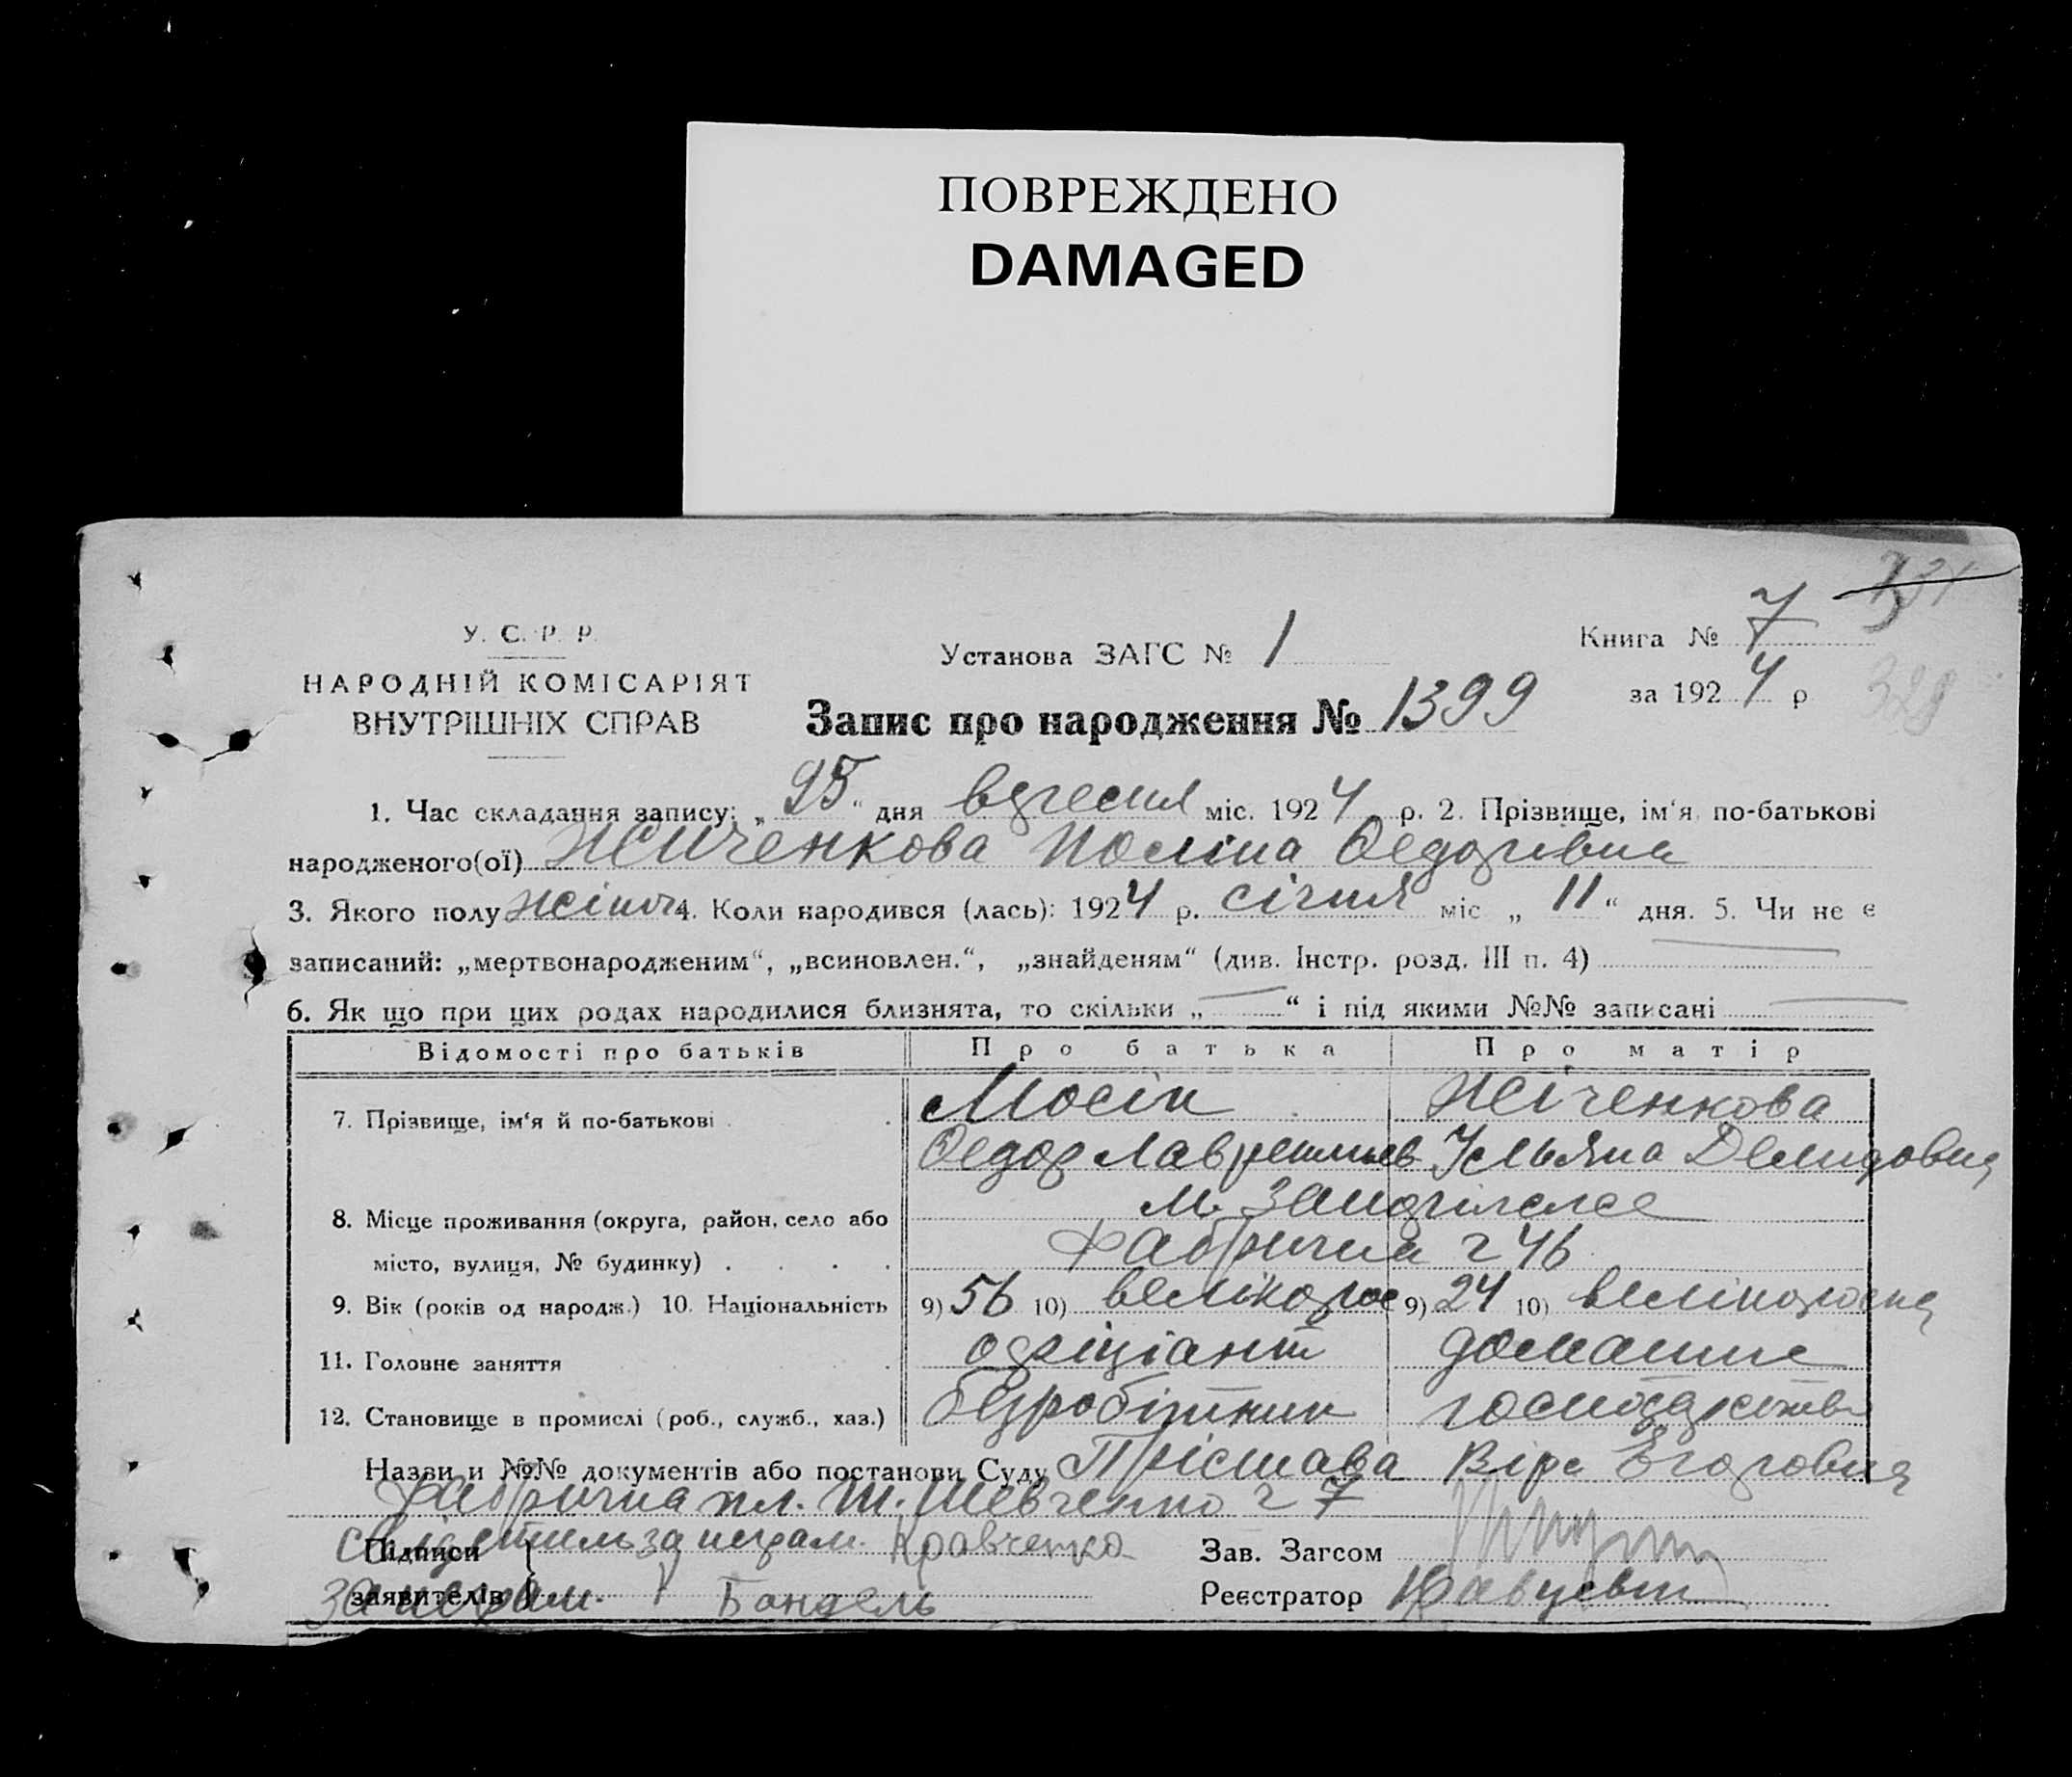 ПОВРЕЖДЕНО
DAMAGED
У. С. Р. Р.
НАРОДНІЙ КОМІСАРІЯТ
ВНУТРІШНІХ СПРАВ
Установа ЗАГС № 1
Книга № 7
за 1924 р
328
Запис про народження № 1399
1. Час складання запису: „25“ дня вересня міс. 1924 р. 2. Прізвище, ім‘я, по-батькові
народженого(ої) Жиченкова Поліна Федорівна
3. Якого полу жіноч 4. Коли народився (лась): 1924 р. січня міс „11“ дня. 5. Чи не є
записаний: „мертвонародженим“, „всиновлен.“, „знайденям“ (див. Інстр. розд. III п. 4)
6. Як що при цих родах народилися близнята, то скільки „ “ і під якими №№ записані
Відомості про батьків Про батька Про матір
7. Прізвище, ім‘я й по-батькові Мосін Жіченкова
Федор Лаврентьев Ульяна Демидовна
8. Місце проживання (округа, район, село або м. Запоріжжє
місто, вулиця, № будинку) Фабрична ч 46
9. Вік (років од народж.) 10. Національність 9) 56 10) велікорос 9) 24 10) велікоросна
11. Головне заняття офіціант домашнє
12. Становище в промислі (роб., служб., хаз.) безробітник господарство
Назви и №№ документів або постанови Суду Прістава Віра Егоровна
Фабрична пл. Т. Шевченко ч 7
Підписи Кравченко Зав. Загсом
заявителів Бондель Реєстратор